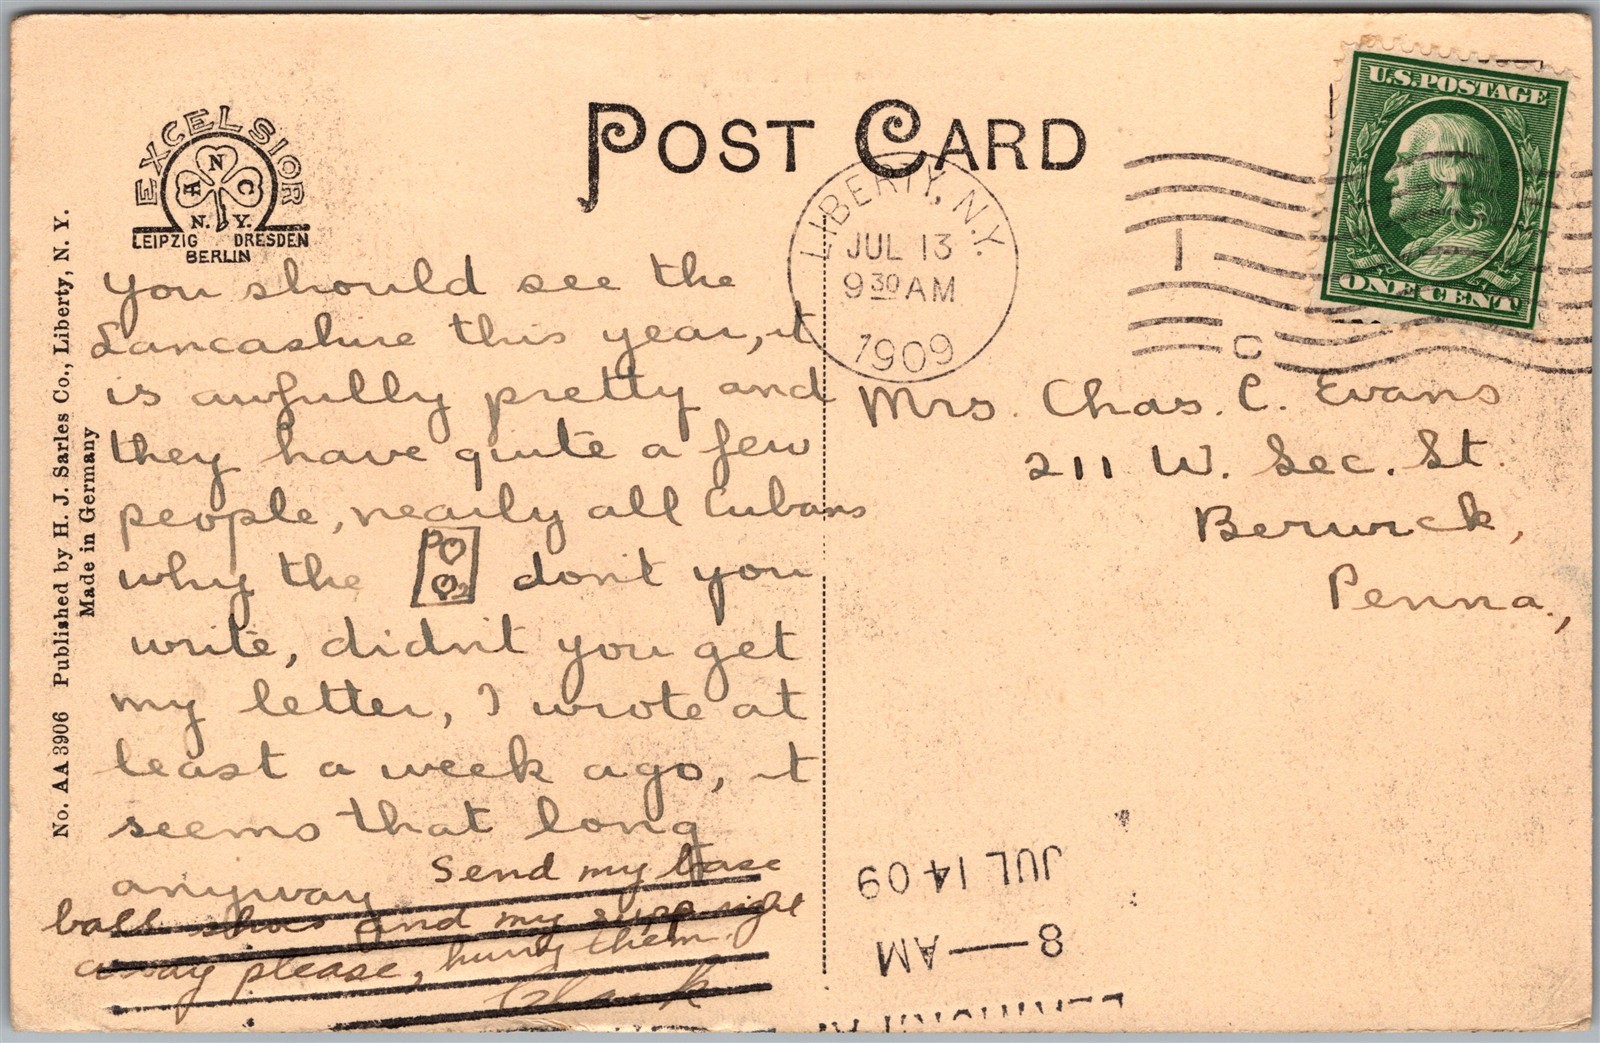 EXCELSIOR
A N C
N. Y.
LEIPZIG DRESDEN
BERLIN
POST CARD
U.S. POSTAGE
ONE CENT
LIBERTY, N.Y.
JUL 13
9 30 AM
1909
1
C
No. AA 3906 Published by H. J. Sarles Co., Liberty, N. Y.
Made in Germany
You should see the
Lancashire this year, it
is awfully pretty and
they have quite a few
people, nearly all Cubans
why the 2 2 don't you
write, didn't you get
my letter, I wrote at
least a week ago, it
seems that long
anyway
Send my base
ball shoes and my supp right
away please, hurry them.
Mrs. Chas. C. Evans
211 W. Sec. St.
Berwick,
Penna.,
JUL 14 09
8 — AM